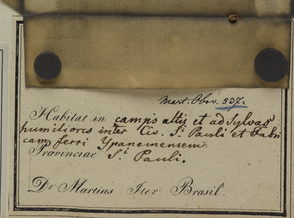 Mart. Obs. 537.
Habitat in campis altis et ad sylvas
humiliores inter Civ. S. Pauli et Fabri
cam ferri Ypanemensem
Provinciae S. Pauli.
Dr Martius Iter Brasil.